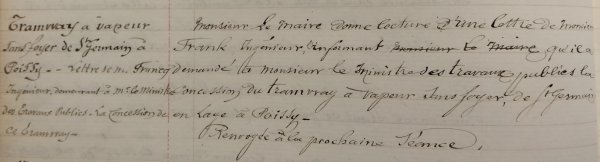 Tramway à vapeur
sans foyer de St Germain à
Poissy. - Lettre de M. Francq
Ingénieur, demandant à Mr le Ministre
des Travaux Publics. La Concession de
ce tramway.
Monsieur le Maire donne lecture d'une lettre de Monsieur
Frank Ingénieur, l'informant Monsieur le Maire qu'il a
demandé à Monsieur le Ministre des travaux publics la
Concession du tramway à vapeur sans foyer, de St Germain
en Laye à Poissy.
Renvoyée à la prochaine Séance.